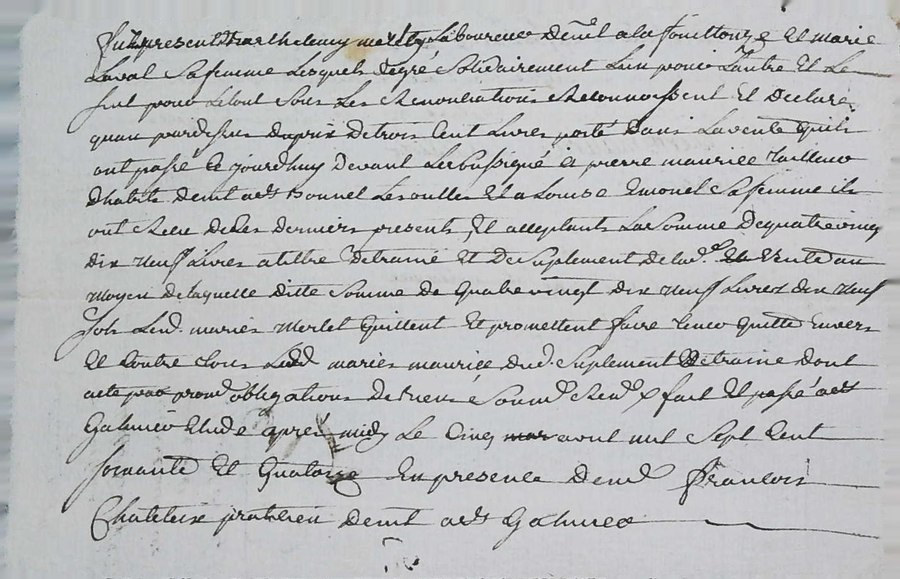 Fut present Barthelemy merlet Laboureur demt a la fouillouze Et marie
Laval Sa femme Lesquels degré Solidairement L'un pour L'autre Et Le
Seul pour Letout Sous Les Renontiations Reconnoissent Et Declare
quau pardessus du prix detrois Cent Livres porté dans La vente quils
ont passé Ce jourdhuy devant Le Soussigné a pierre maurice tailleur
d'habits demt a St Bonnet Les oulles Et a Louise Emonet Sa femme ils
ont Receu de Ces derniers presents Et acceptants La Somme de quatre vingt
dix neuf Livres a tiltre detraine Et De Suplement de lad. Vente au
moyen de laquelle ditte Somme de quatre vingt dix neuf Livres dix neuf
Sols Lesd. mariés merlet quittent Et promettent faire tenir quitte Envers
Et Contre tous Lesd mariés maurice dud. Suplement detraine dont
acte prom. obligations De biens Soum. Ren. & fait Et passé a St
Galmier Etude après midy Le Cinq aout mil Sept Cent
Soixante Et Quatorze En presence de me françois
Chateloix praticien demt a St Galmier